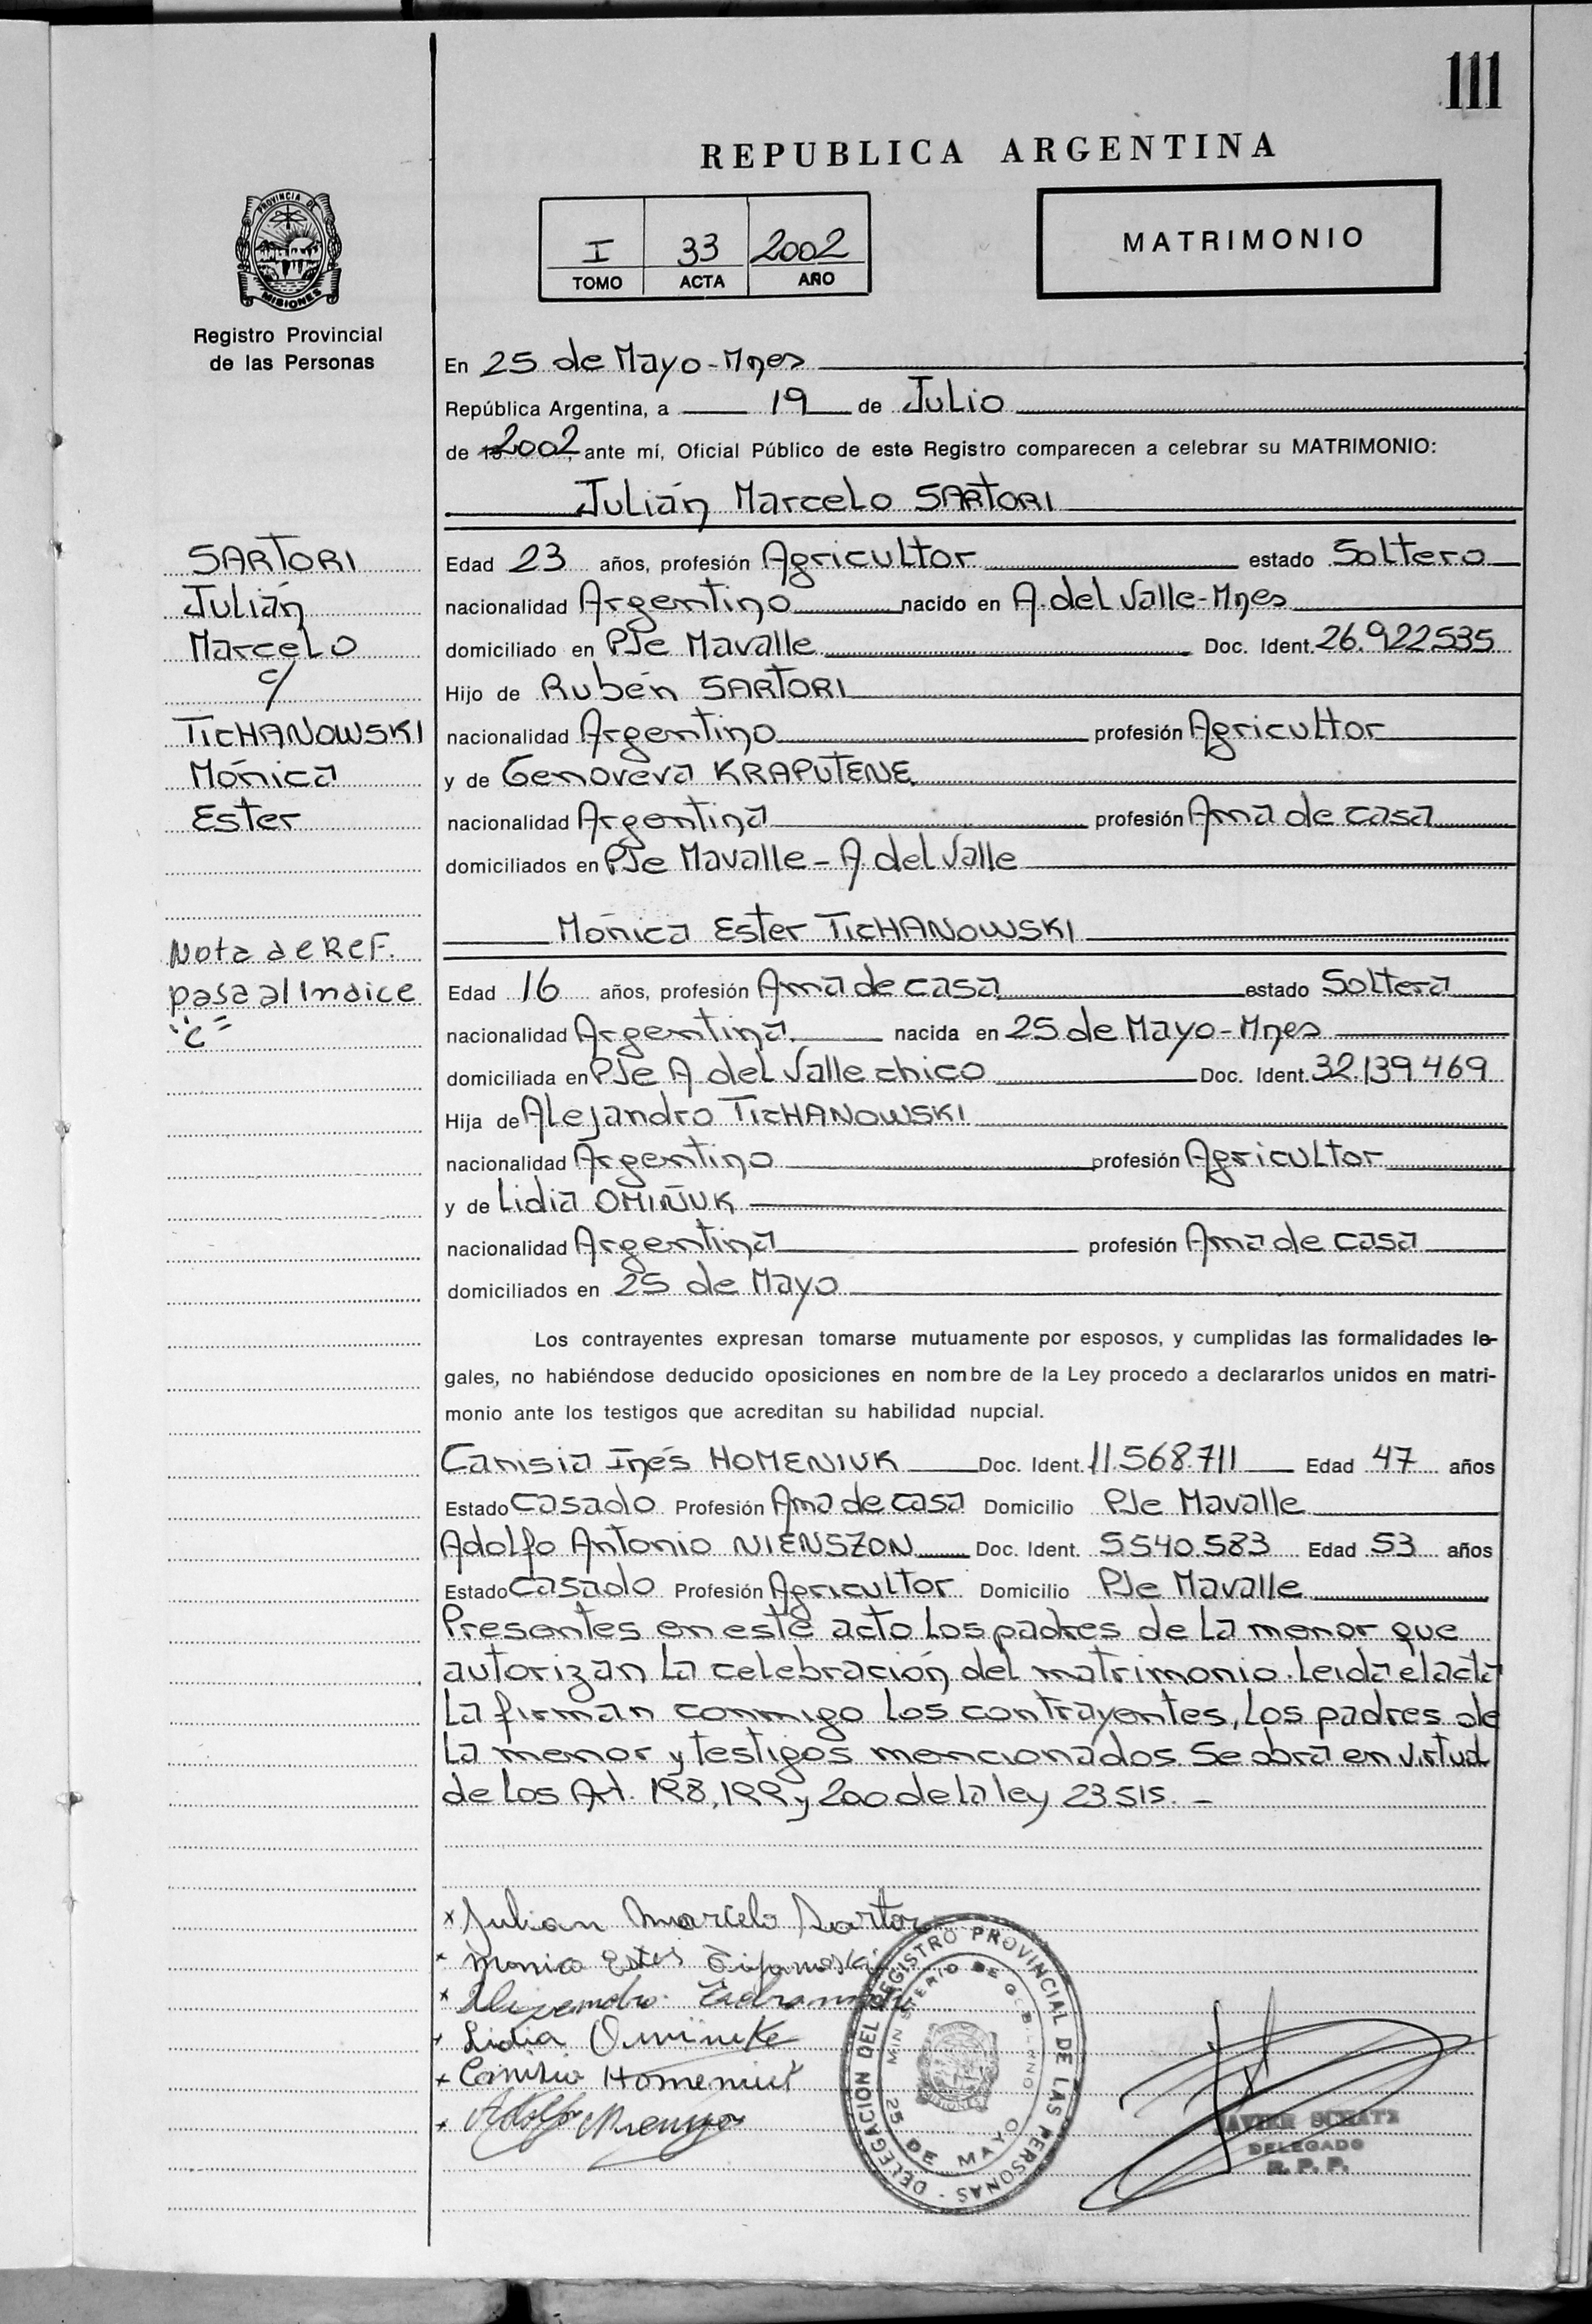 111
REPUBLICA ARGENTINA
PROVINCIA DE
MISIONES
Registro Provincial
de las Personas
I 33 2002
TOMO ACTA AÑO
MATRIMONIO
En 25 de Mayo-Mnes
República Argentina, a 19 de Julio
de 2002, ante mí, Oficial Público de este Registro comparecen a celebrar su MATRIMONIO:
Julián Marcelo SARTORI
SARTORI
Julián
Marcelo
c/
TICHANOWSKI
Mónica
Ester
Nota de ReF.
pasa al Indice
"C"
Edad 23 años, profesión Agricultor estado Soltero
nacionalidad Argentino nacido en A. del Valle-Mnes
domiciliado en PJe Mavalle Doc. Ident. 26.922.535
Hijo de Rubén SARTORI
nacionalidad Argentino profesión Agricultor
y de Genoveva KRAPUTENE
nacionalidad Argentina profesión Ama de casa
domiciliados en PJe Mavalle - A del Valle
Mónica Ester TICHANOWSKI
Edad 16 años, profesión Ama de casa estado Soltera
nacionalidad Argentina nacida en 25 de Mayo-Mnes
domiciliada en PJe A del Valle chico Doc. Ident. 32.139.469
Hija de Alejandro TICHANOWSKI
nacionalidad Argentino profesión Agricultor
y de Lidia OMIÑUK
nacionalidad Argentina profesión Ama de casa
domiciliados en 25 de Mayo
Los contrayentes expresan tomarse mutuamente por esposos, y cumplidas las formalidades le-
gales, no habiéndose deducido oposiciones en nombre de la Ley procedo a declararlos unidos en matri-
monio ante los testigos que acreditan su habilidad nupcial.
Canisia Inés HOMENIUK Doc. Ident. 11.568.711 Edad 47 años
Estado Casado Profesión Ama de casa Domicilio PJe Mavalle
Adolfo Antonio NIENSZON Doc. Ident. 5.540.583 Edad 53 años
Estado Casado Profesión Agricultor Domicilio PJe Mavalle
Presentes en este acto los padres de la menor que
autorizan la celebración del matrimonio. Leida el acta
la firman conmigo los contrayentes, los padres de
la menor y testigos mencionados. Se obra en virtud
de los Art. 198, 199 y 200 de la ley 23.515. -
x Julian Marcelo Sartori
x Monica Ester
x
x Lidia
x Canisia Homeniuk
x Adolfo
DELEGACION DEL REGISTRO PROVINCIAL DE LAS PERSONAS -
MINISTERIO DE GOBIERNO
25 DE MAYO
MISIONES
JAVIER SCHATZ
DELEGADO
R. P. P.